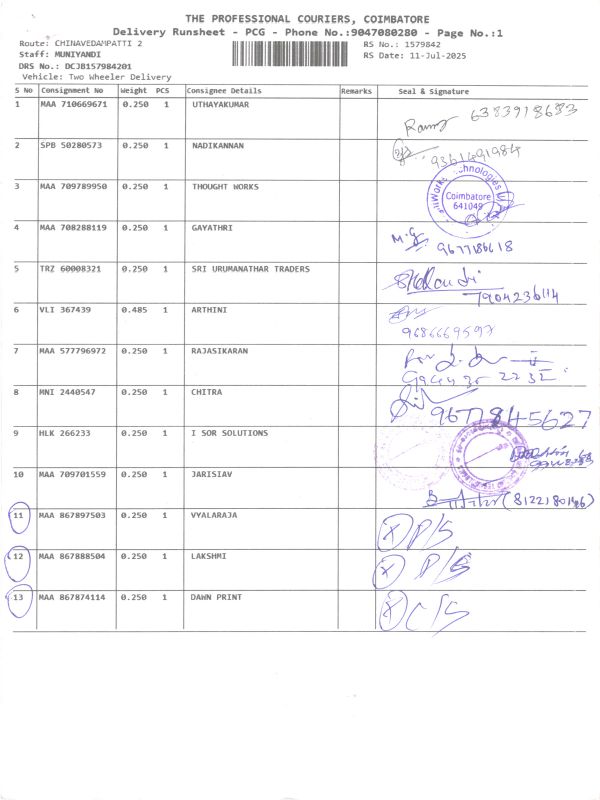 THE PROFESSIONAL COURIERS, COIMBATORE
Delivery Runsheet - PCG - Phone No.:9047080280 - Page No.:1
Route: CHINAVEDAMPATTI 2
RS No.: 1579842
Staff: MUNIYANDI
RS Date: 11-Jul-2025
DRS No.: DCJB157984201
Vehicle: Two Wheeler Delivery
S No Consignment No Weight PCS Consignee Details Remarks Seal & Signature
1 MAA 710669671 0.250 1 UTHAYAKUMAR
2 SPB 50280573 0.250 1 NADIKANNAN 9361491984
3 MAA 709789950 0.250 1 THOUGHT WORKS Coimbatore
641049
4 MAA 708288119 0.250 1 GAYATHRI M.G
9677186618
5 TRZ 60008321 0.250 1 SRI URUMANATHAR TRADERS
6 VLI 367439 0.485 1 ARTHINI
9686669597
7 MAA 577796972 0.250 1 RAJASIKARAN
8 MNI 2440547 0.250 1 CHITRA 9677845627
9 HLK 266233 0.250 1 I SOR SOLUTIONS
10 MAA 709701559 0.250 1 JARISIAV
11 MAA 867897503 0.250 1 VYALARAJA X P/S
12 MAA 867888504 0.250 1 LAKSHMI X P/S
13 MAA 867874114 0.250 1 DAWN PRINT X C/S